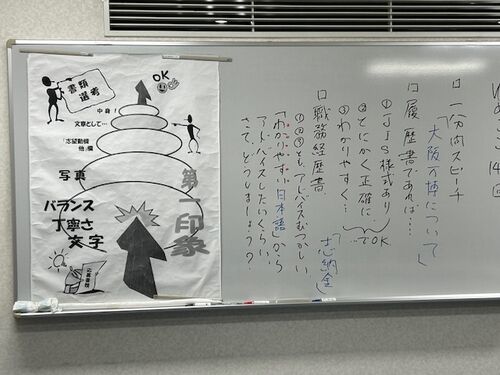 書類
選考
OK
中身!
文章として…
「志望動機
他」欄
写真
バランス
丁寧さ
文字
第一印象
応募書類
口一分間スピーチ
「大阪万博について」
口履歴書であれば…
①JIS様式あり
②とにかく正確に、
③わかりやすく…
でOK
口職務経歴書
「志納金」
①②③も、アドバイスむつかしい
「わかりやすい日本語」から
アドバイスしたいくらい、
さて、どうしましょう?